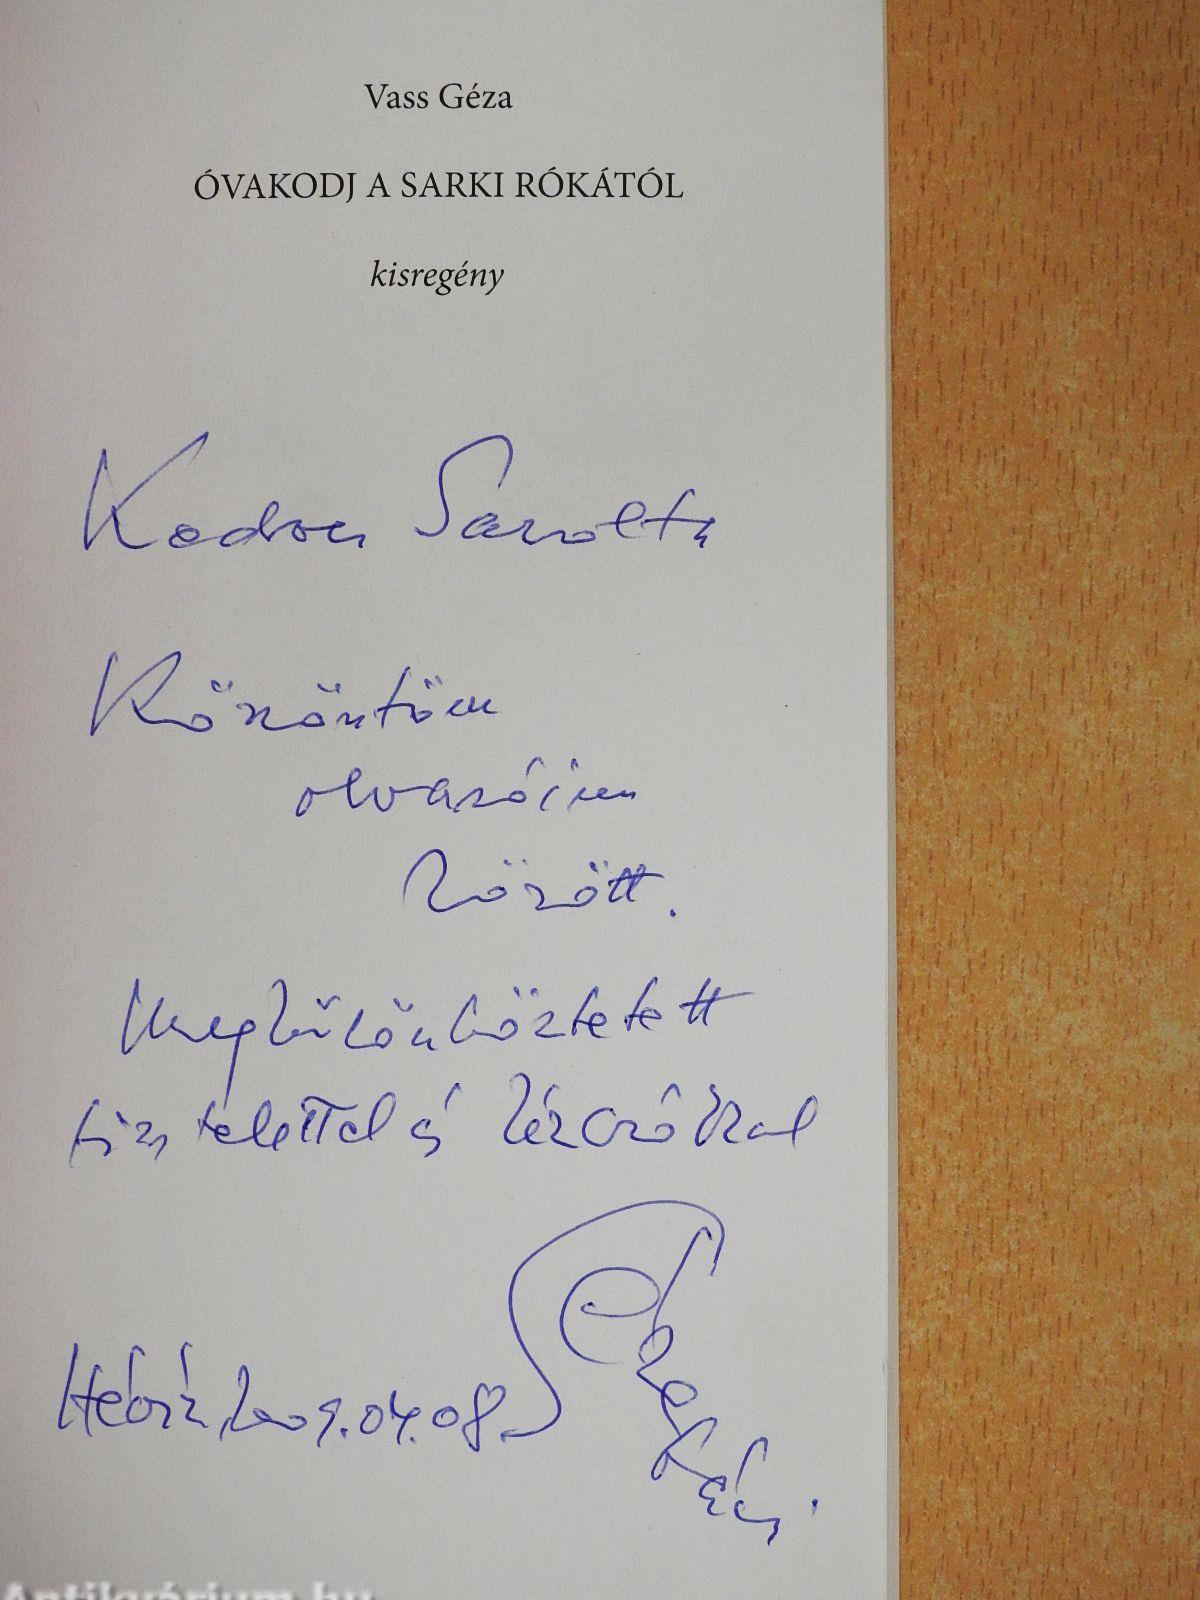 Vass Géza
ÓVAKODJ A SARKI RÓKÁTÓL
kisregény
Kedves Sarolta
Köszöntöm
olvasóim
között.
Megkülönböztetett
tisztelettel és kézcsókkal
2009.04.08.
Antikvárium.hu